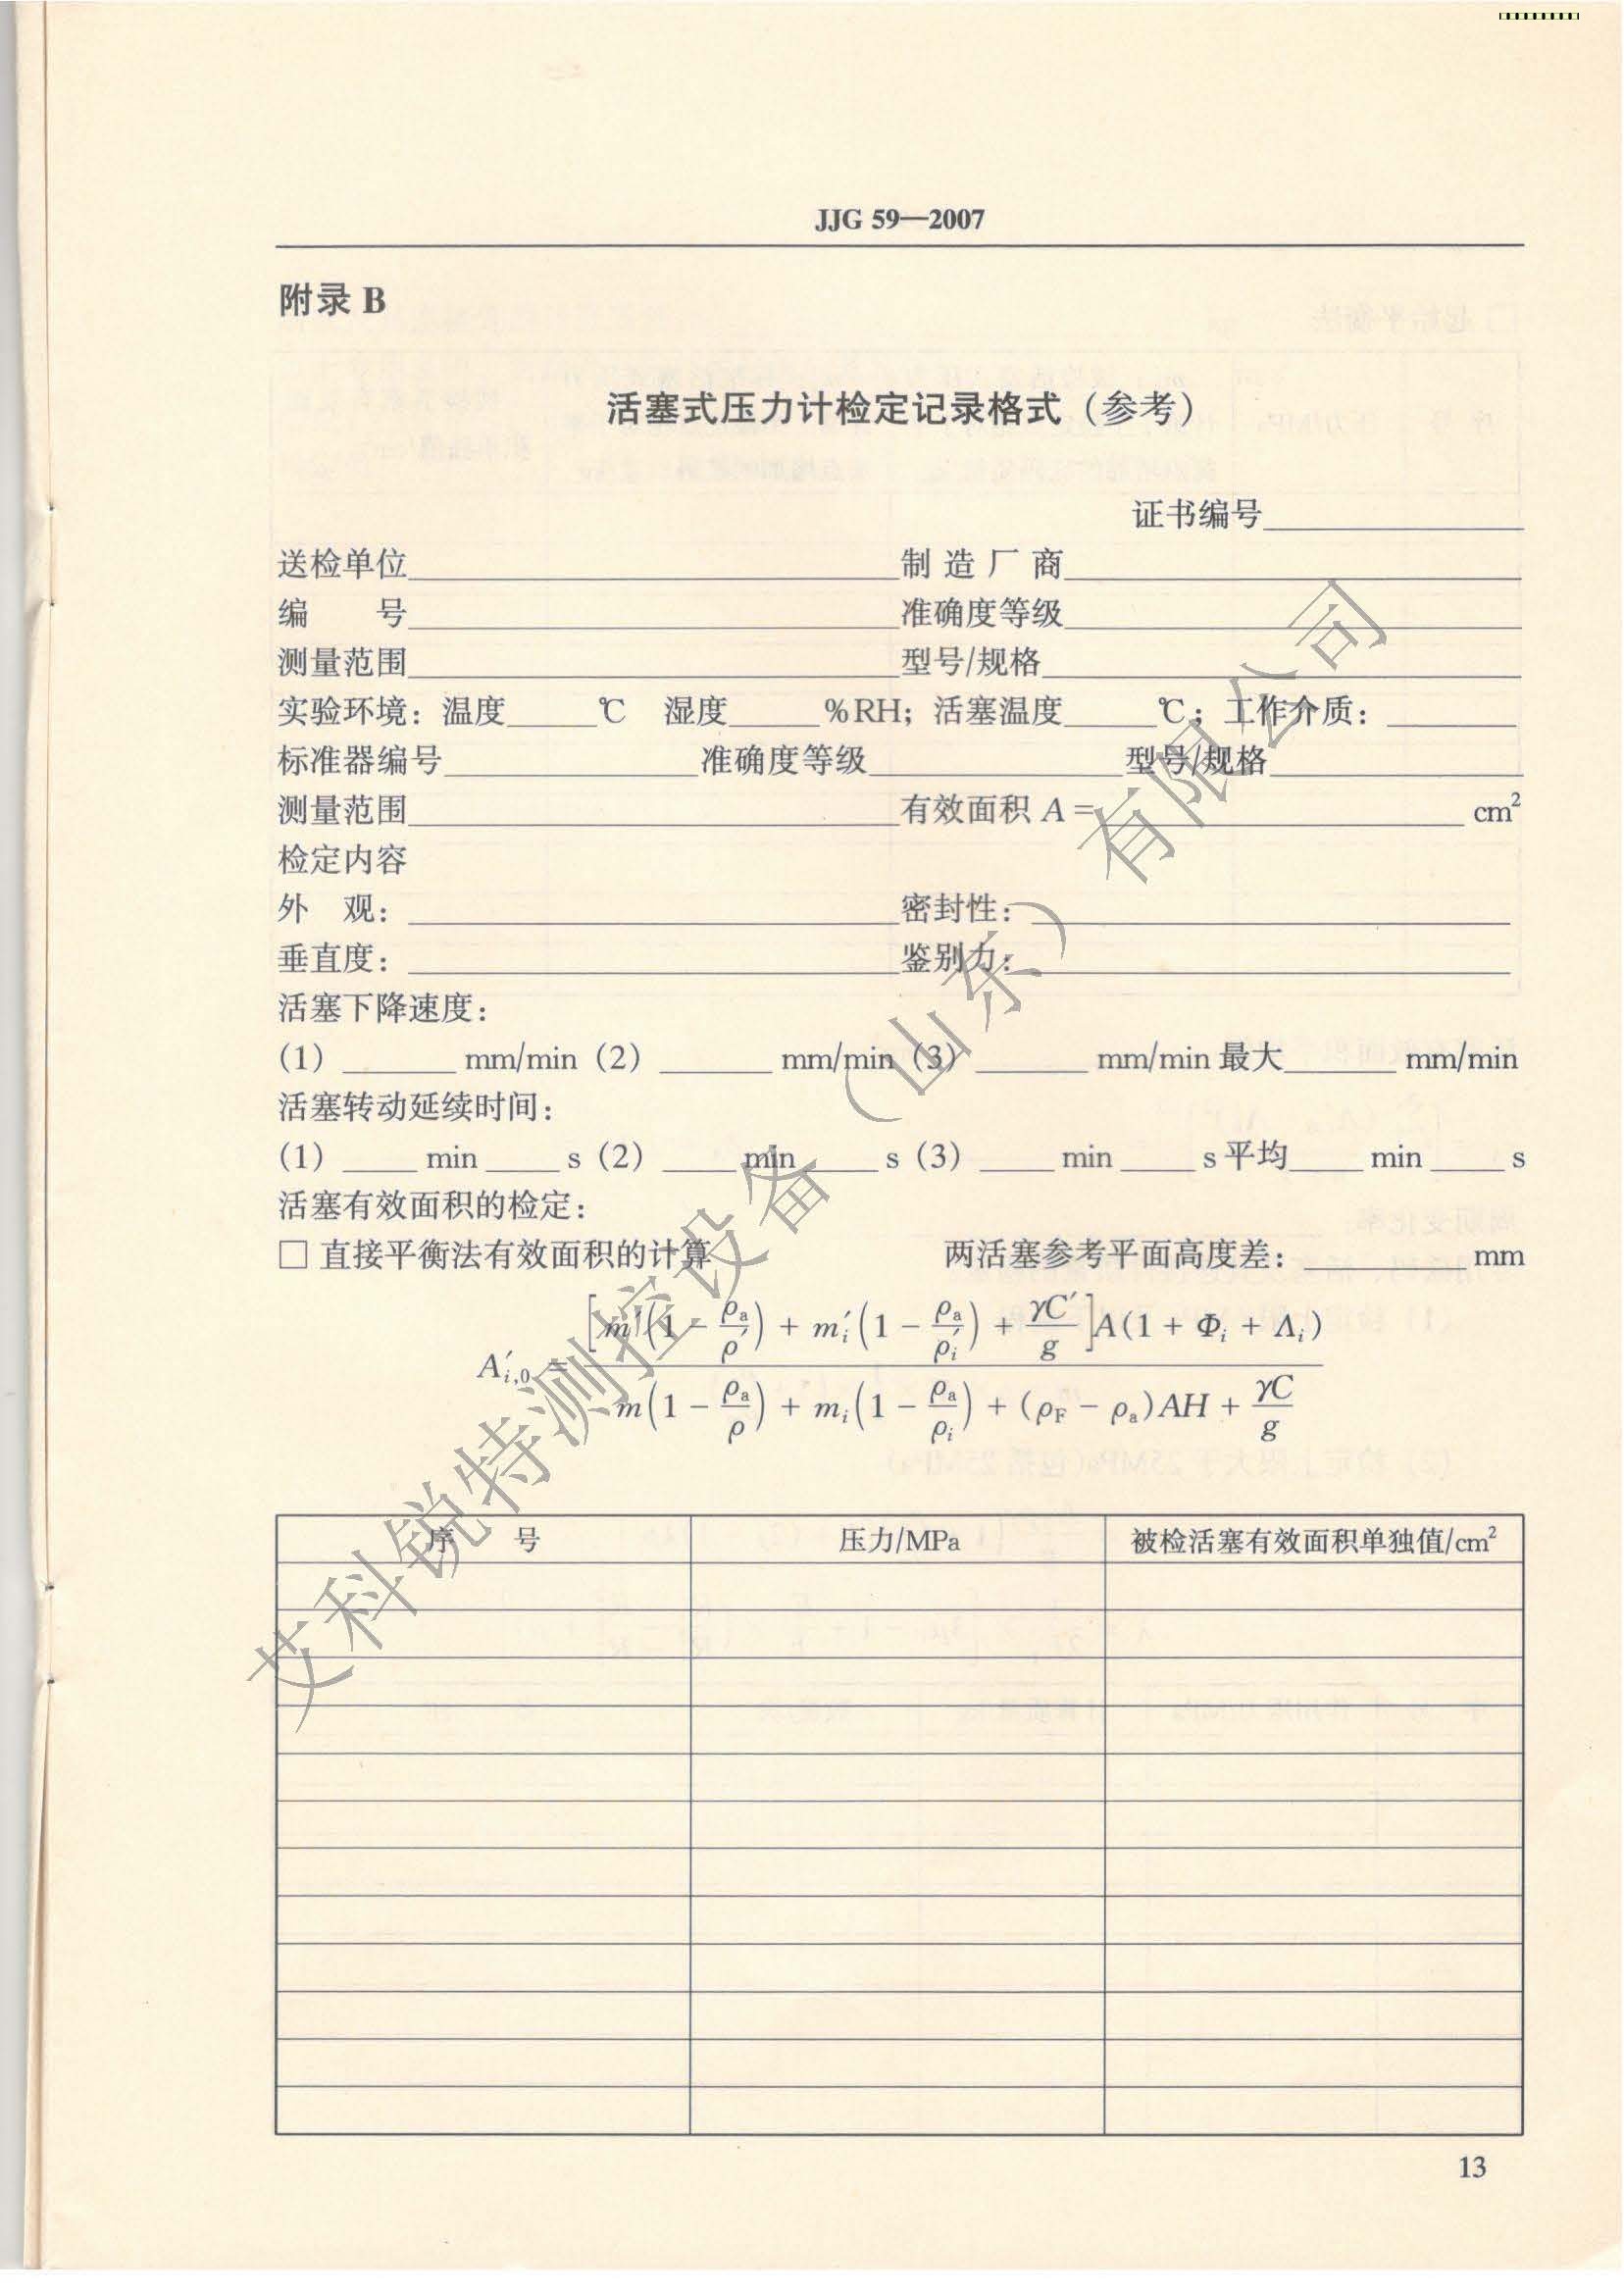 JJG 59—2007
附录 B
活塞式压力计检定记录格式（参考）
证书编号________
送检单位________制 造 厂 商________
编　　号________准确度等级________
测量范围________型号/规格________
实验环境：温度____℃　湿度____%RH；活塞温度____℃；工作介质：____
标准器编号________准确度等级________型号/规格________
测量范围________有效面积 A = ________ cm²
检定内容
外　观：________密封性：________
垂直度：________鉴别力：________
活塞下降速度：
（1）____ mm/min（2）____ mm/min（3）____ mm/min 最大____ mm/min
活塞转动延续时间：
（1）____ min ____ s（2）____ min ____ s（3）____ min ____ s 平均____ min ____ s
活塞有效面积的检定：
□ 直接平衡法有效面积的计算　　两活塞参考平面高度差：____ mm
A′_{i,0} = [m′(1 − ρ_a/ρ′) + m′_i(1 − ρ_a/ρ′_i) + γC′/g]A(1 + Φ_i + Λ_i) / m(1 − ρ_a/ρ) + m_i(1 − ρ_a/ρ_i) + (ρ_F − ρ_a)AH + γC/g
序　　号　　压力/MPa　　被检活塞有效面积单独值/cm²
13
艾科锐特测控设备（山东）有限公司